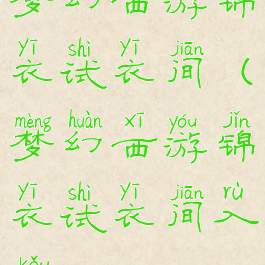 梦幻西游锦
yī shì yī jiān
衣试衣间（
mèng huàn xī yóu jǐn
梦幻西游锦
yī shì yī jiān rù
衣试衣间入
kǒu